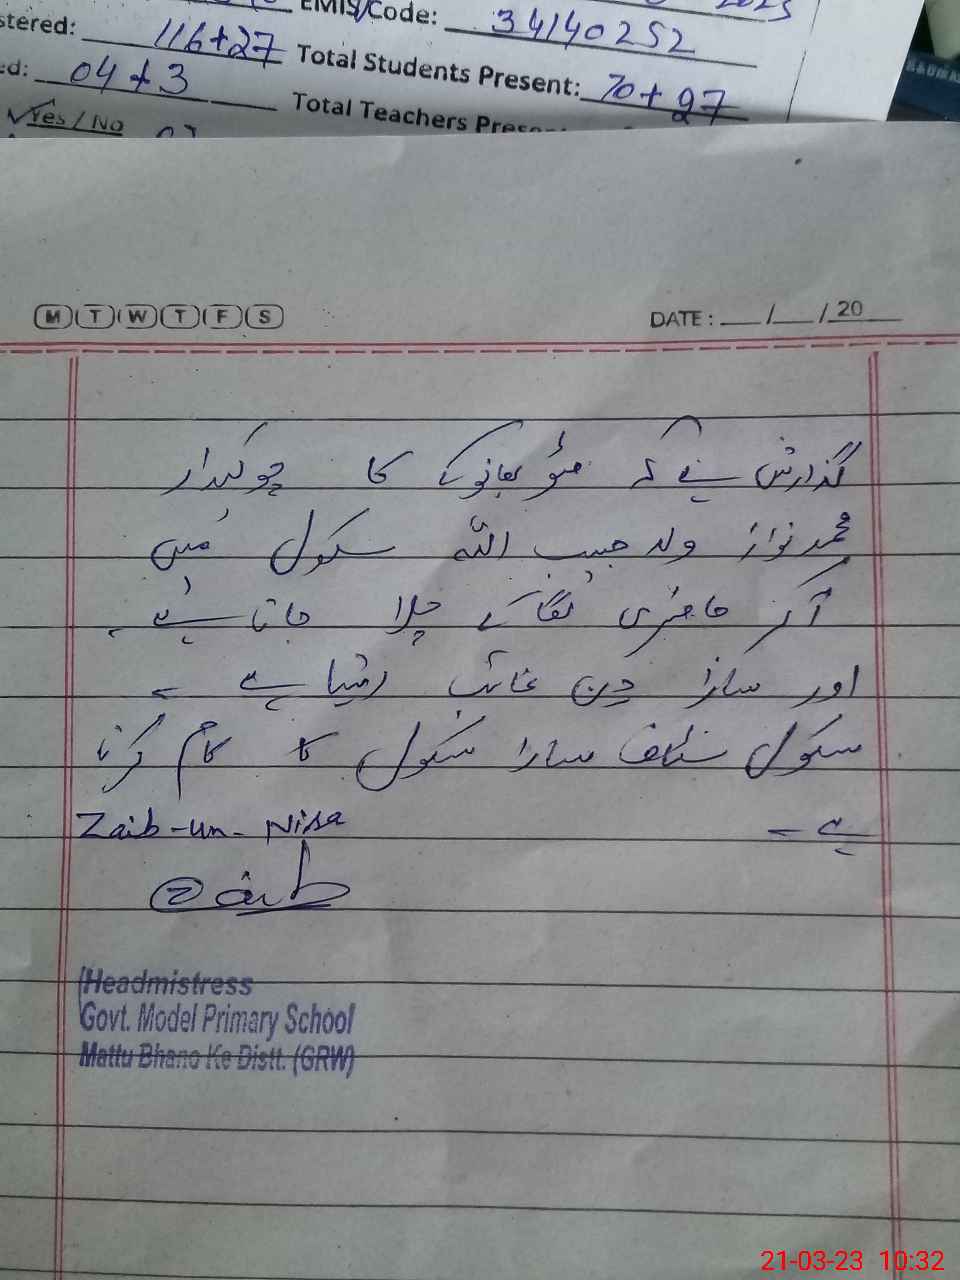 EMIS/Code: 34140252
stered: 116+27 Total Students Present: 70+97
ed: 04+3 Total Teachers Prese
Yes / No
M T W T F S DATE : __/__/20__
گذارش ہے کہ متو بھانوکے کا چوکیدار
محمد نواز ولد حبیب اللہ سکول میں
آکر حاضری لگا کے چلا جاتا ہے۔
اور سارا دن غائب رہتا ہے۔
سکول سٹاف سارا سکول کا کام کرتا
ہے۔
Zaib-un-Nisa
Zaib
Headmistress
Govt. Model Primary School
Mattu Bhano Ke Distt. (GRW)
21-03-23 10:32